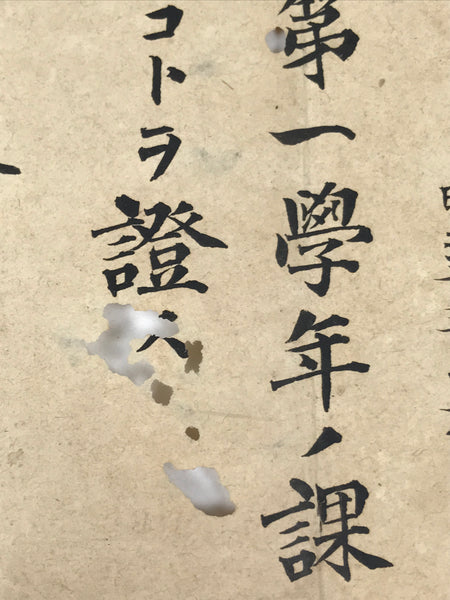 第一學年ノ課
コトヲ證ス